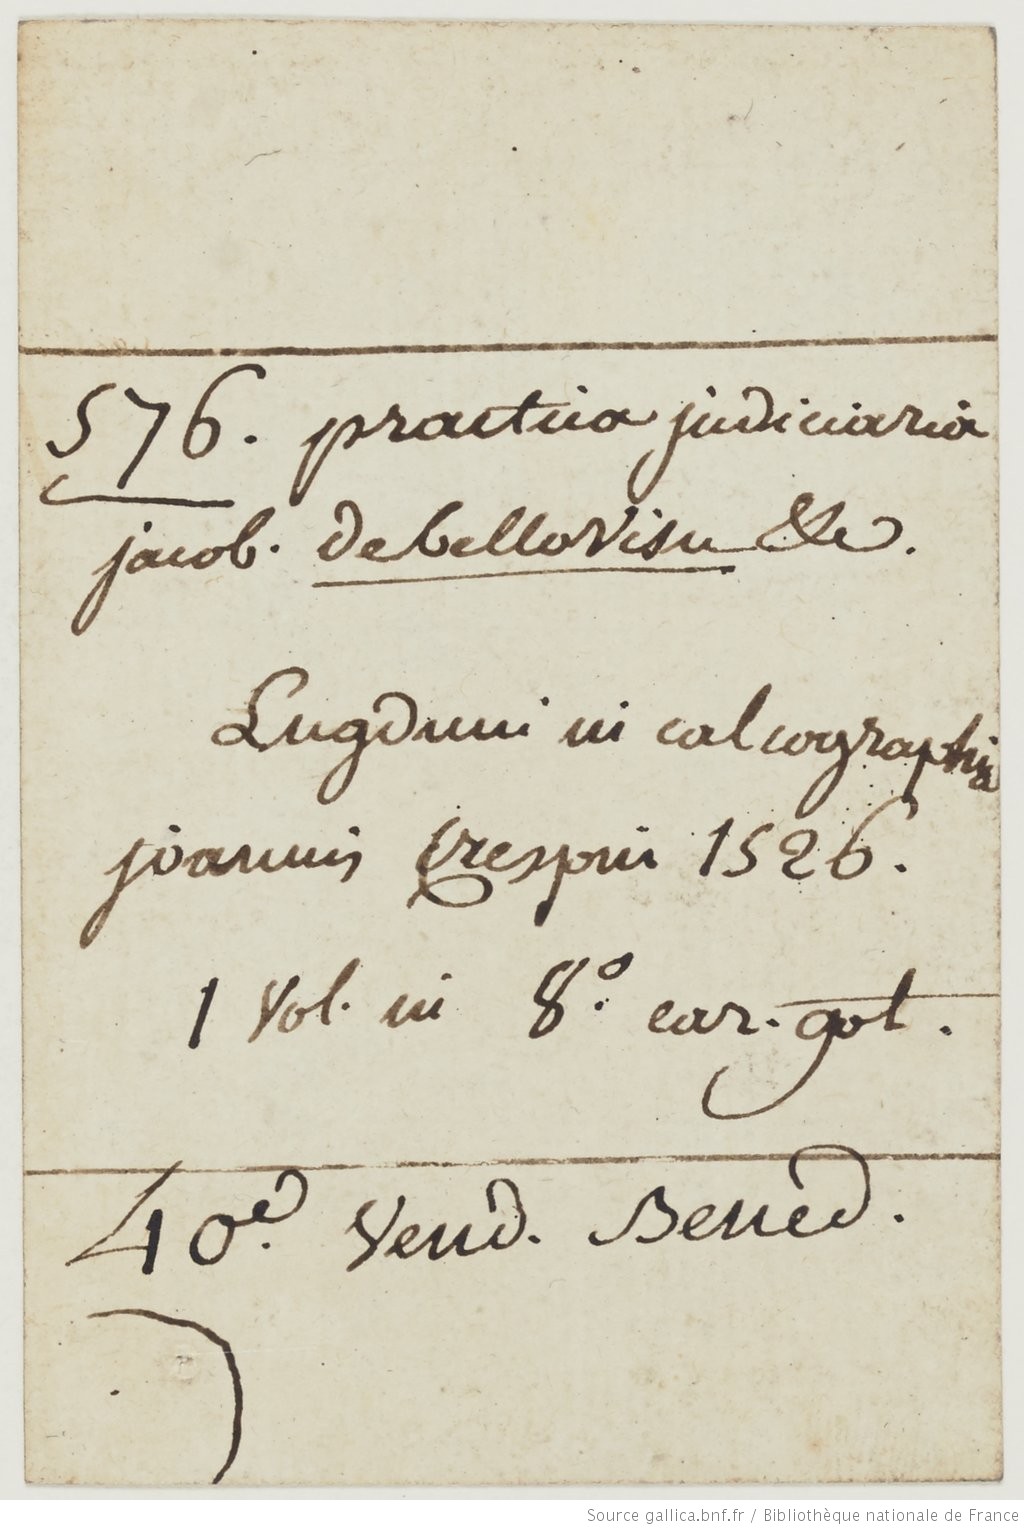 576. practica judiciaria
jacob. de bellovisu &c.
Lugduni in calcographia
joannis Crespin 1526.
1 Vol. in 8º. car. got.
40ed. Vend. Bened.
Source gallica.bnf.fr / Bibliothèque nationale de France